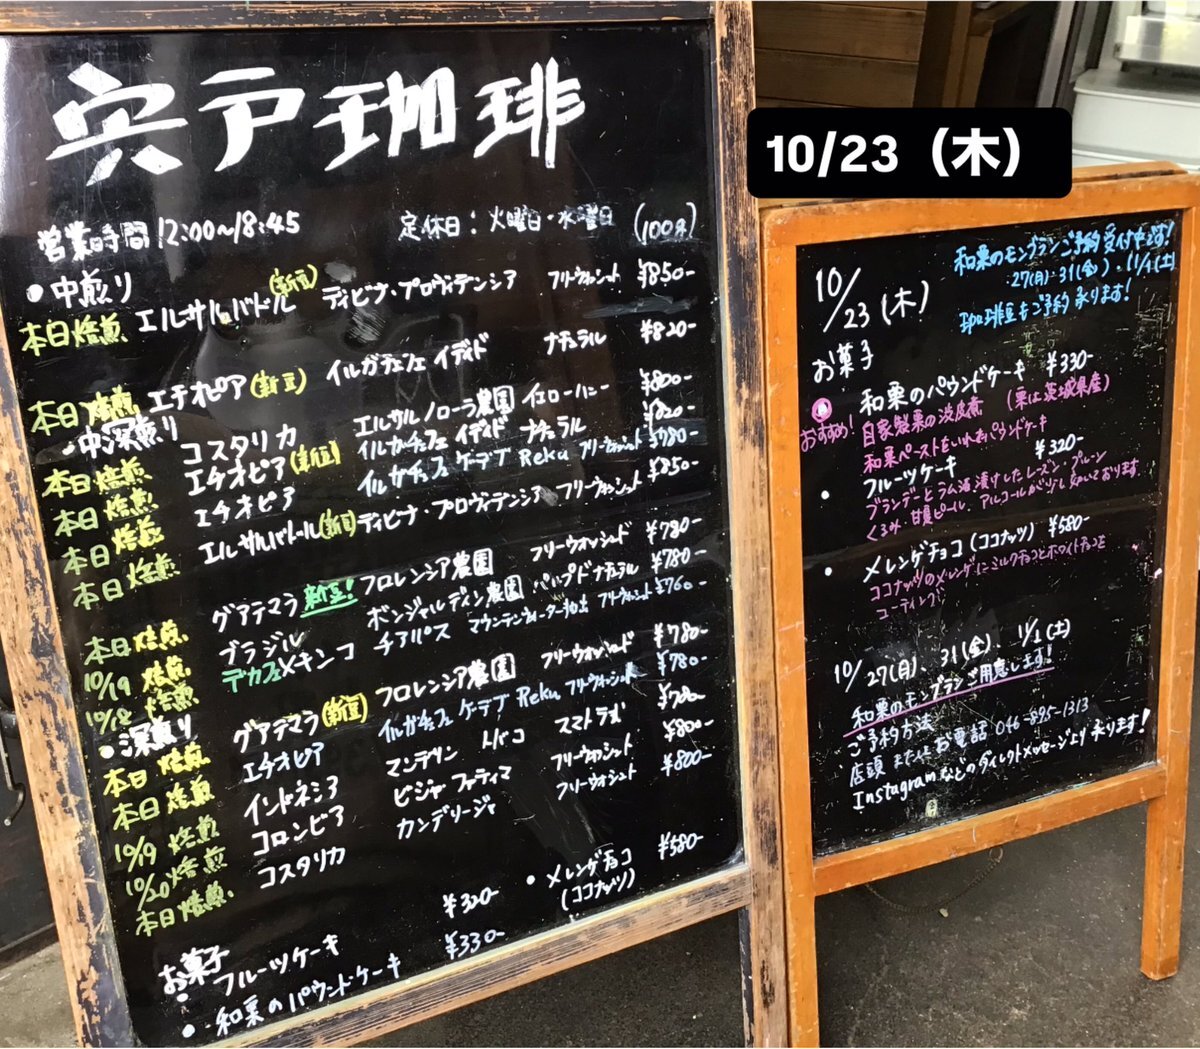 宍戸珈琲
営業時間 12:00〜18:45 定休日：火曜日・水曜日 (100g)
・中煎り
本日焙煎 エルサルバドル (新豆) ディビナ・プロヴィデンシア フリーウォシュト ¥850-
本日焙煎 エチオピア (新豆) イルガチェフェ イディド ナチュラル ¥820-
・中深煎り
本日焙煎 コスタリカ エルサルノローラ農園 イエローハニー ¥800-
本日焙煎 エチオピア (新豆) イルガチェフェ イディド ナチュラル ¥820-
本日焙煎 エチオピア イルガチェフェ ケーデブ Reku フリーウォシュト ¥780-
本日焙煎 エルサルバドル (新豆) ディビナ・プロヴィデンシア フリーウォシュト ¥850-
本日焙煎 グアテマラ 新豆! フロレンシア農園 フリーウォシュド ¥780-
10/19 焙煎 ブラジル ボンジャルディン農園 パルプドナチュラル ¥780-
10/18 焙煎 デカフェメキシコ チアパス マウンテンウォーター抽出 フリーウォシュト ¥760-
・深煎り
本日焙煎 グアテマラ (新豆) フロレンシア農園 フリーウォシュド ¥780-
本日焙煎 エチオピア イルガチェフェ ケーデブ Reku フリーウォシュト ¥780-
10/19 焙煎 インドネシア マンデリン トバコ スマトラ式 ¥780-
10/20 焙煎 コロンビア ビジャファティマ フリーウォシュト ¥800-
本日焙煎 コスタリカ カンデリージャ フリーウォシュト ¥800-
お菓子
・フルーツケーキ ¥320-
・和栗のパウンドケーキ ¥330-
・メレンゲチョコ ¥580-
(ココナッツ)
10/23（木）
和栗のモンブランご予約受付中です!
27(月)・31(金)・11/1(土)
珈琲豆もご予約承ります!
10/23(木)
お菓子
和栗のパウンドケーキ ¥330-
おすすめ! 自家製栗の渋皮煮 (栗は茨城県産)
和栗ペーストをいれたパウンドケーキ
・フルーツケーキ ¥320-
ブランデーとラム酒漬けしたレーズン・プルーン
くるみ 甘夏ピール、アルコールが少し
・メレンゲチョコ(ココナッツ) ¥580-
ココナッツのメレンゲにミルクチョコとホワイトチョコを
コーティング
10/27(月)、31(金)、11/1(土)
和栗のモンブランご用意します!
ご予約方法
店頭またはお電話 046-895-1313
Instagramなどのダイレクトメッセージより承ります!